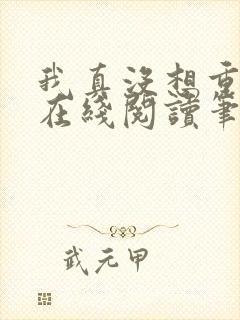 我真沒想重
在綫閱讀筆
武元甲